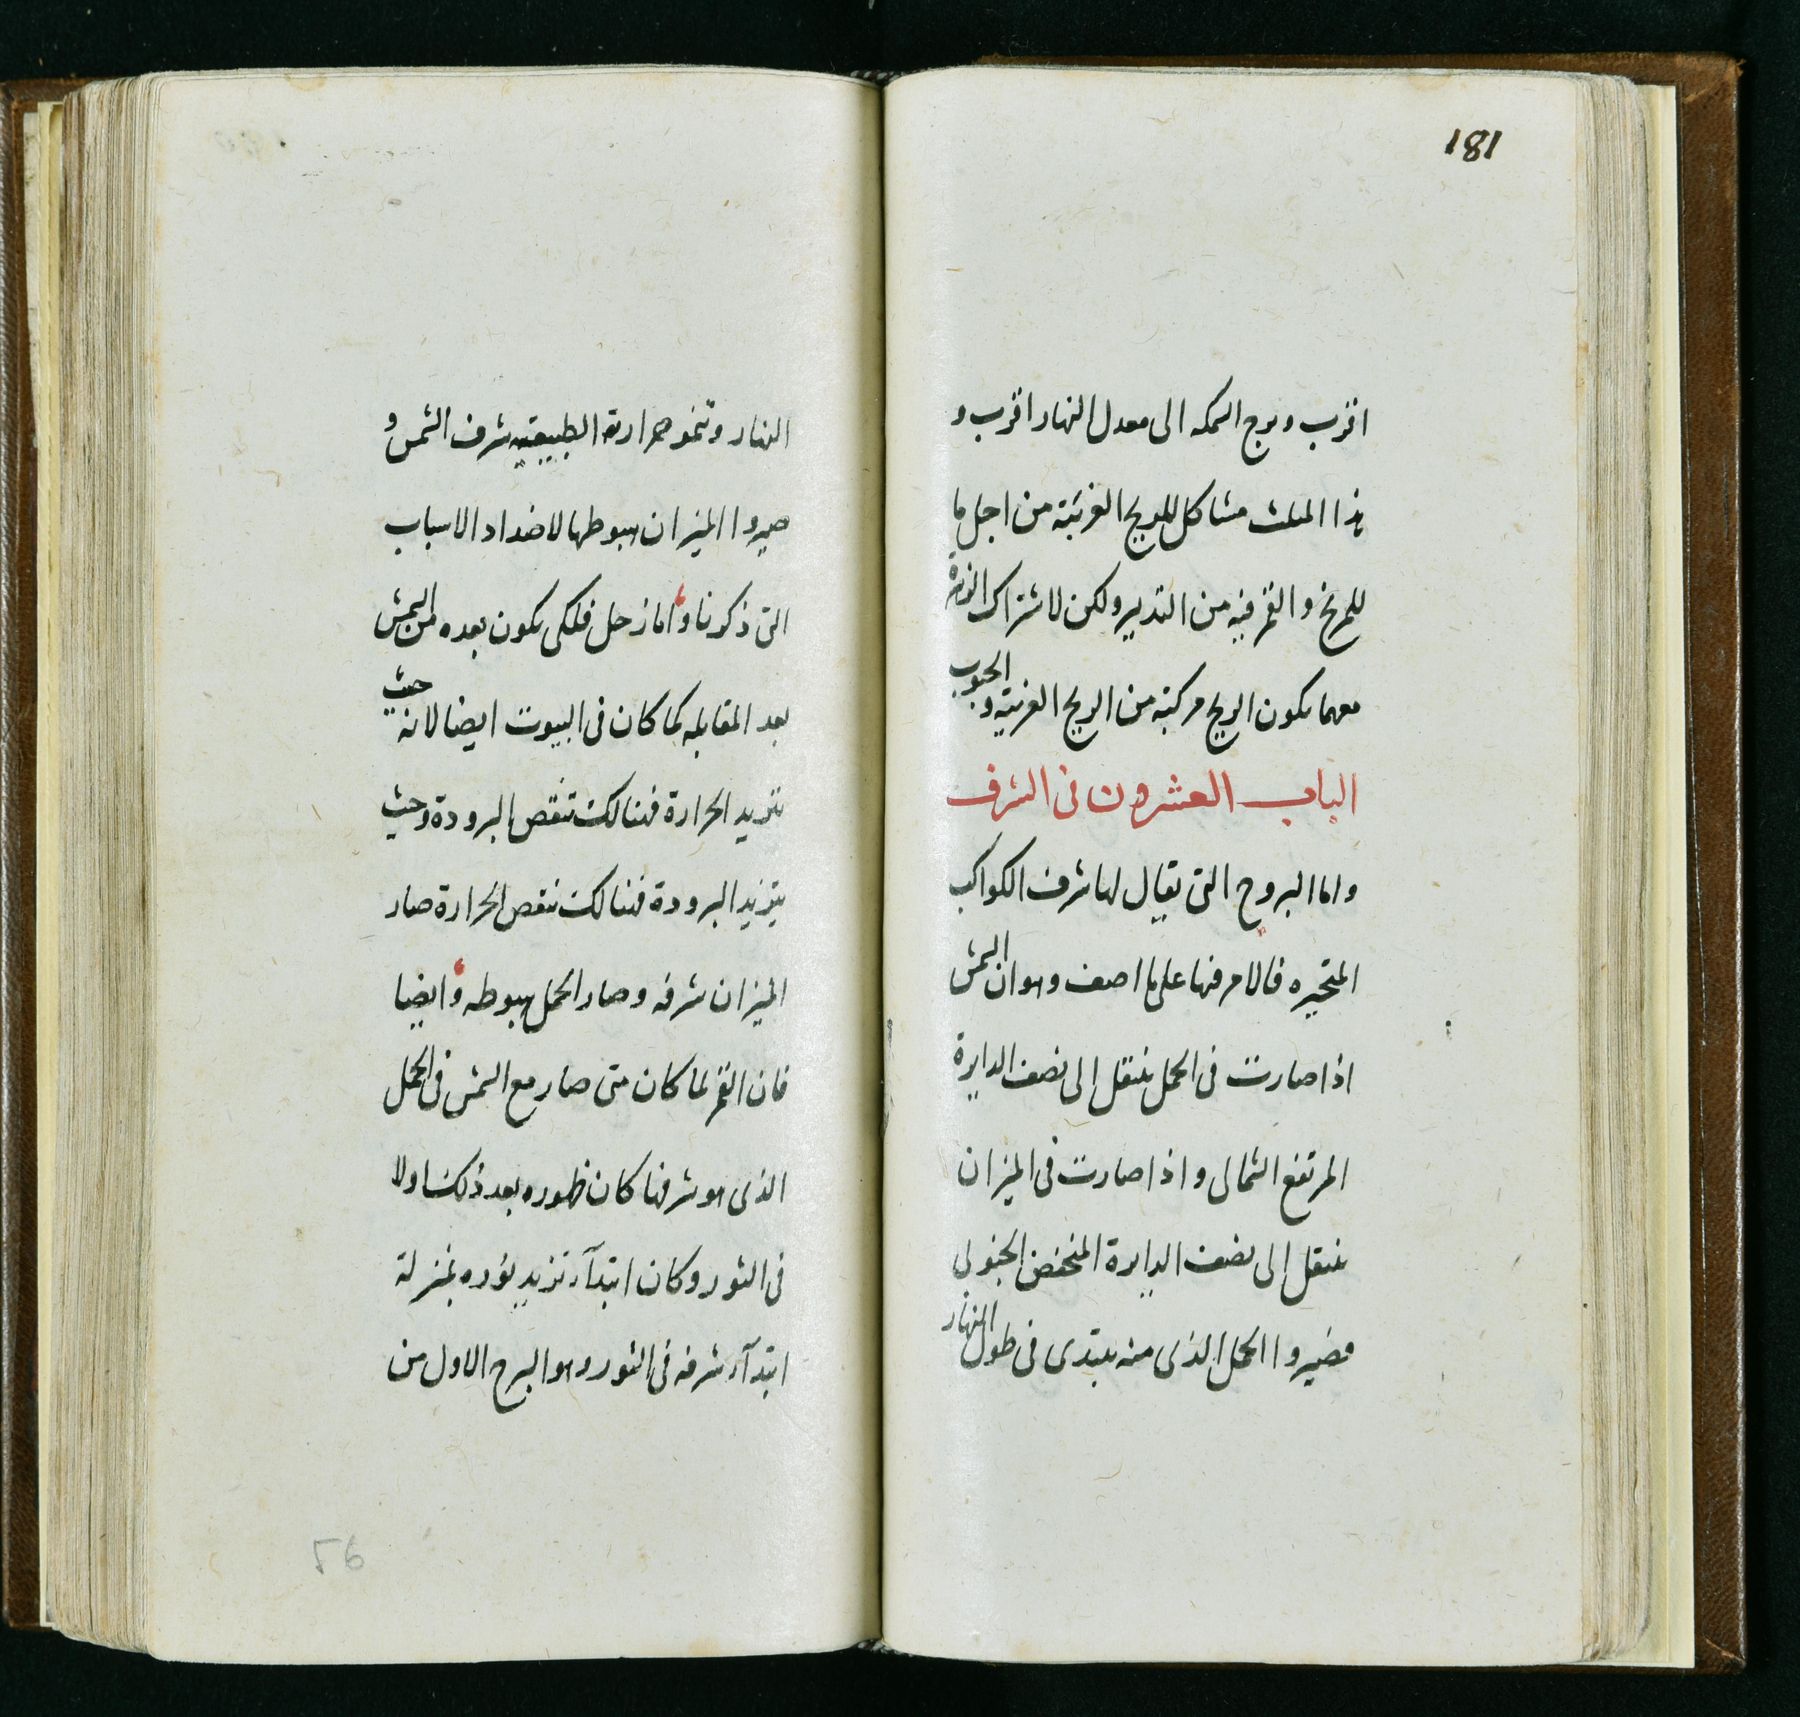 181
اقرب وبرج السمكه الى معدل النهار اقرب و
هذا المثلث مشاكل للريح الغربية من اجل ما
للمريخ و القمر فيه من التدبير ولكن لاشتراك الزهرة
معهما يكون الريح مركبة من الريح الغربية والجنوب
الباب العشرون فى الشرف
واما البروج التى يقال لها شرف الكواكب
المتحيره فالامر فيها على ما اصف وهو ان الشمس
اذا صارت فى الحمل ينتقل الى نصف الدايرة
المرتفع الشمالى و اذا صارت فى الميزان
ينتقل الى نصف الدايرة المنخفض الجنوبى
فصيروا الحمل الذى منه يبتدى فى طول النهار
النهار وتنمو حرارته الطبيعية شرف الشمس و
صيروا الميزان هبوطها لاضداد الاسباب
التى ذكرنا و اما زحل فلكى يكون بعده من الشمس
بعد المقابله كما كان فى البيوت ايضا لانه حيث
تتزيد الحرارة فهنالك تنقص البرودة وحيث
يتزيد البرودة فهنالك تنقص الحرارة صار
الميزان شرفه وصار الحمل هبوطه و ايضا
فان القمر لما كان متى صار مع الشمس فى الحمل
الذى هو شرفها كان ظهوره بعد ذلك اولا
فى الثور وكان ابتدآء تزيد نوره بمنزلة
ابتدآء شرفه فى الثور وهو البرج الاول من
56